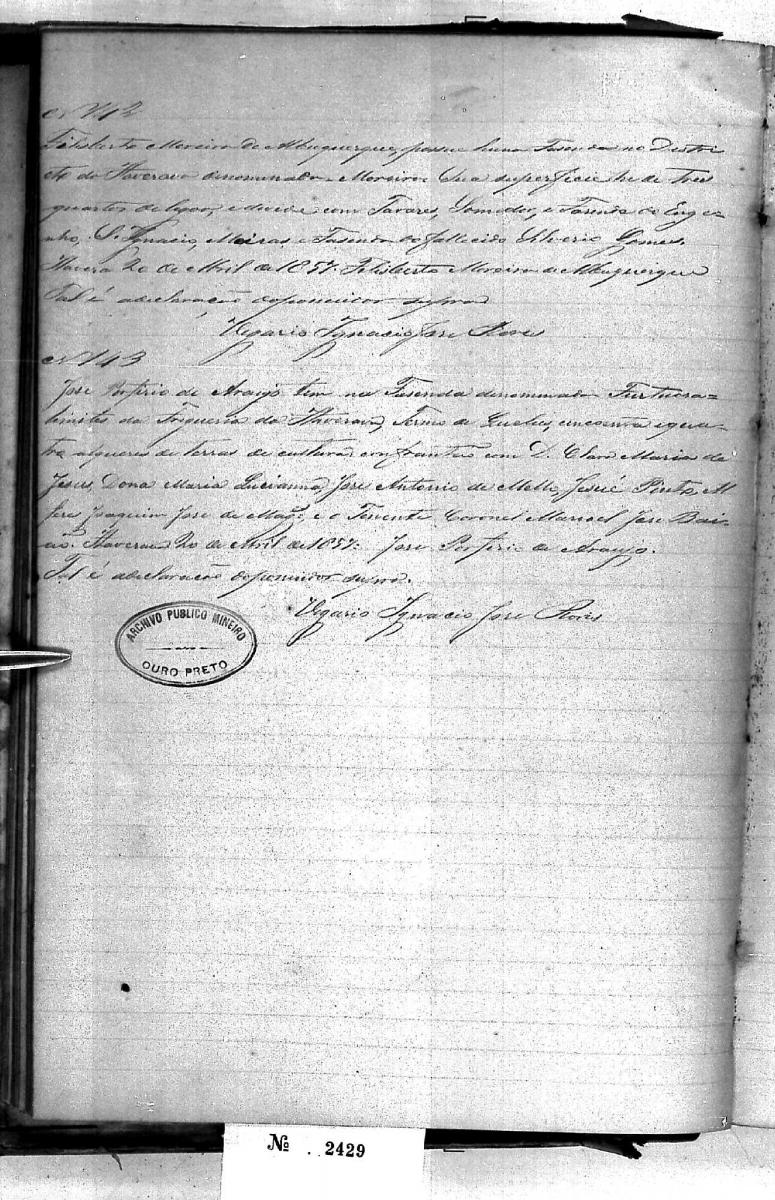 N 142
Felisberto Moreira de Albuquerque, possue huma Fasenda no Distri
cto do Itaverava denominada Moreira Sua superficie he de tres
quartos de legoa, e divide com Tavares, e Fasenda do Enge-
nho, S. Ignacio, Meiras e Fasenda do fallecido Silverio Gomes.
Itavera 20 de Abril de 1857. Felisberto Moreira de Albuquerque
Tal é a declaração do possuidor supra
Vigario Ignacio Jose
N 143
Jose Porfirio de Araujo tem na Fasenda denominada
limites da Freguesia do Itaverava, Termo de Queluz, cincoenta e qua-
tro alqueres de terras de cultura, confrontão com D. Clara Maria de
Jesus, Dona Maria Lucianna, Jose Antonio de Mello, Pinto
Joaquim Jose de e o Tenente Coronel Manoel Jose
Itaverava 20 de Abril de 1857. Jose Porfirio de Araujo.
Tal é a declaração do possuidor supra.
Vigario Ignacio Jose
ARCHIVO PUBLICO MINEIRO
OURO PRETO
Nº 2429